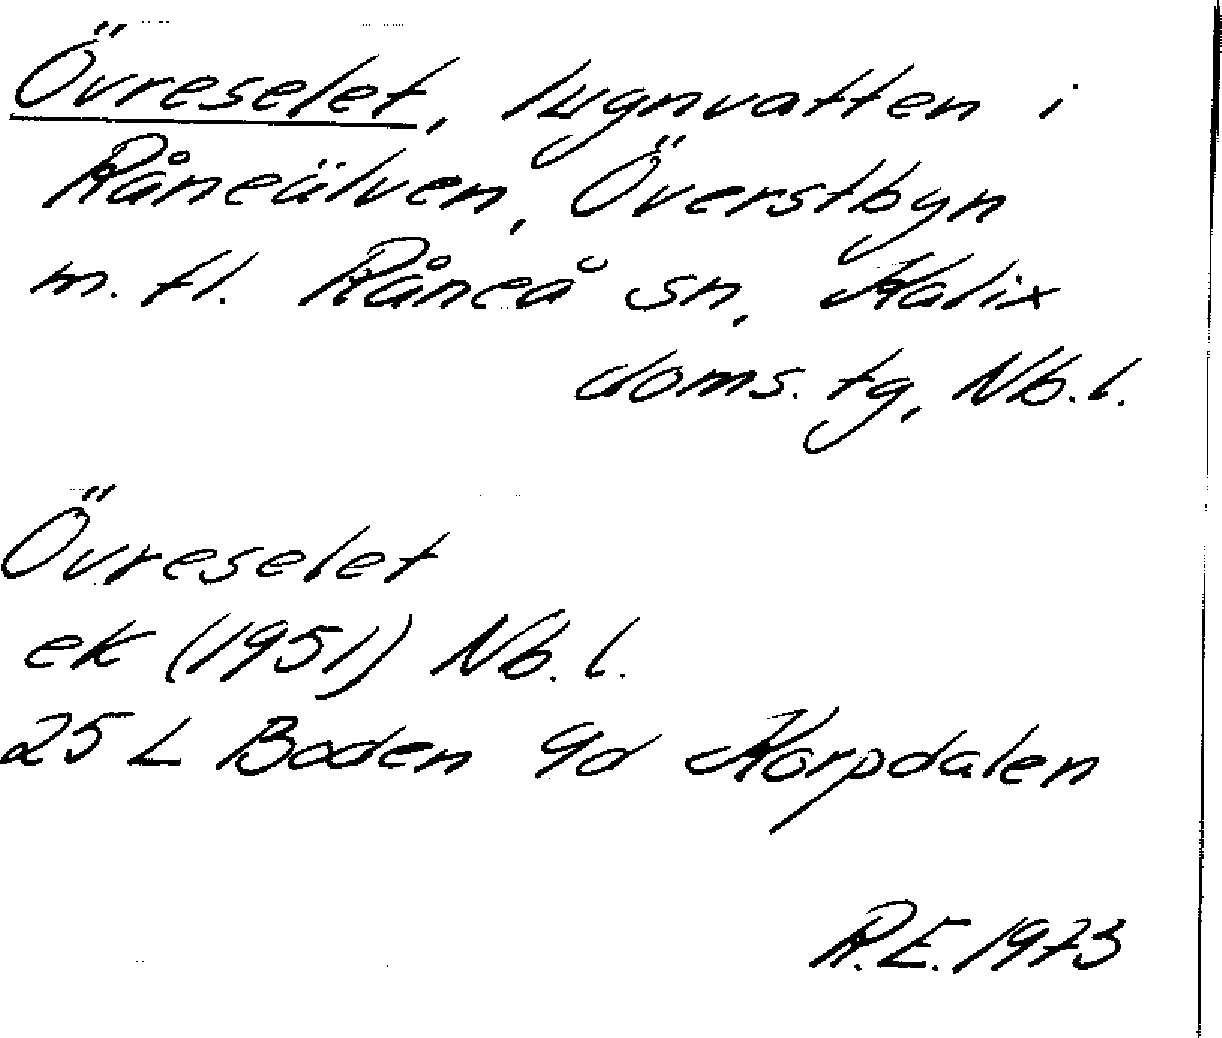 Övreselet, lugnvatten i
Råneälven, Överstbyn
m. fl. Råneå sn, Kalix
doms. tg, Nb. l.
Övreselet
ek (1951) Nb. l.
25 L Boden 9d Korpdalen
R.E. 1973